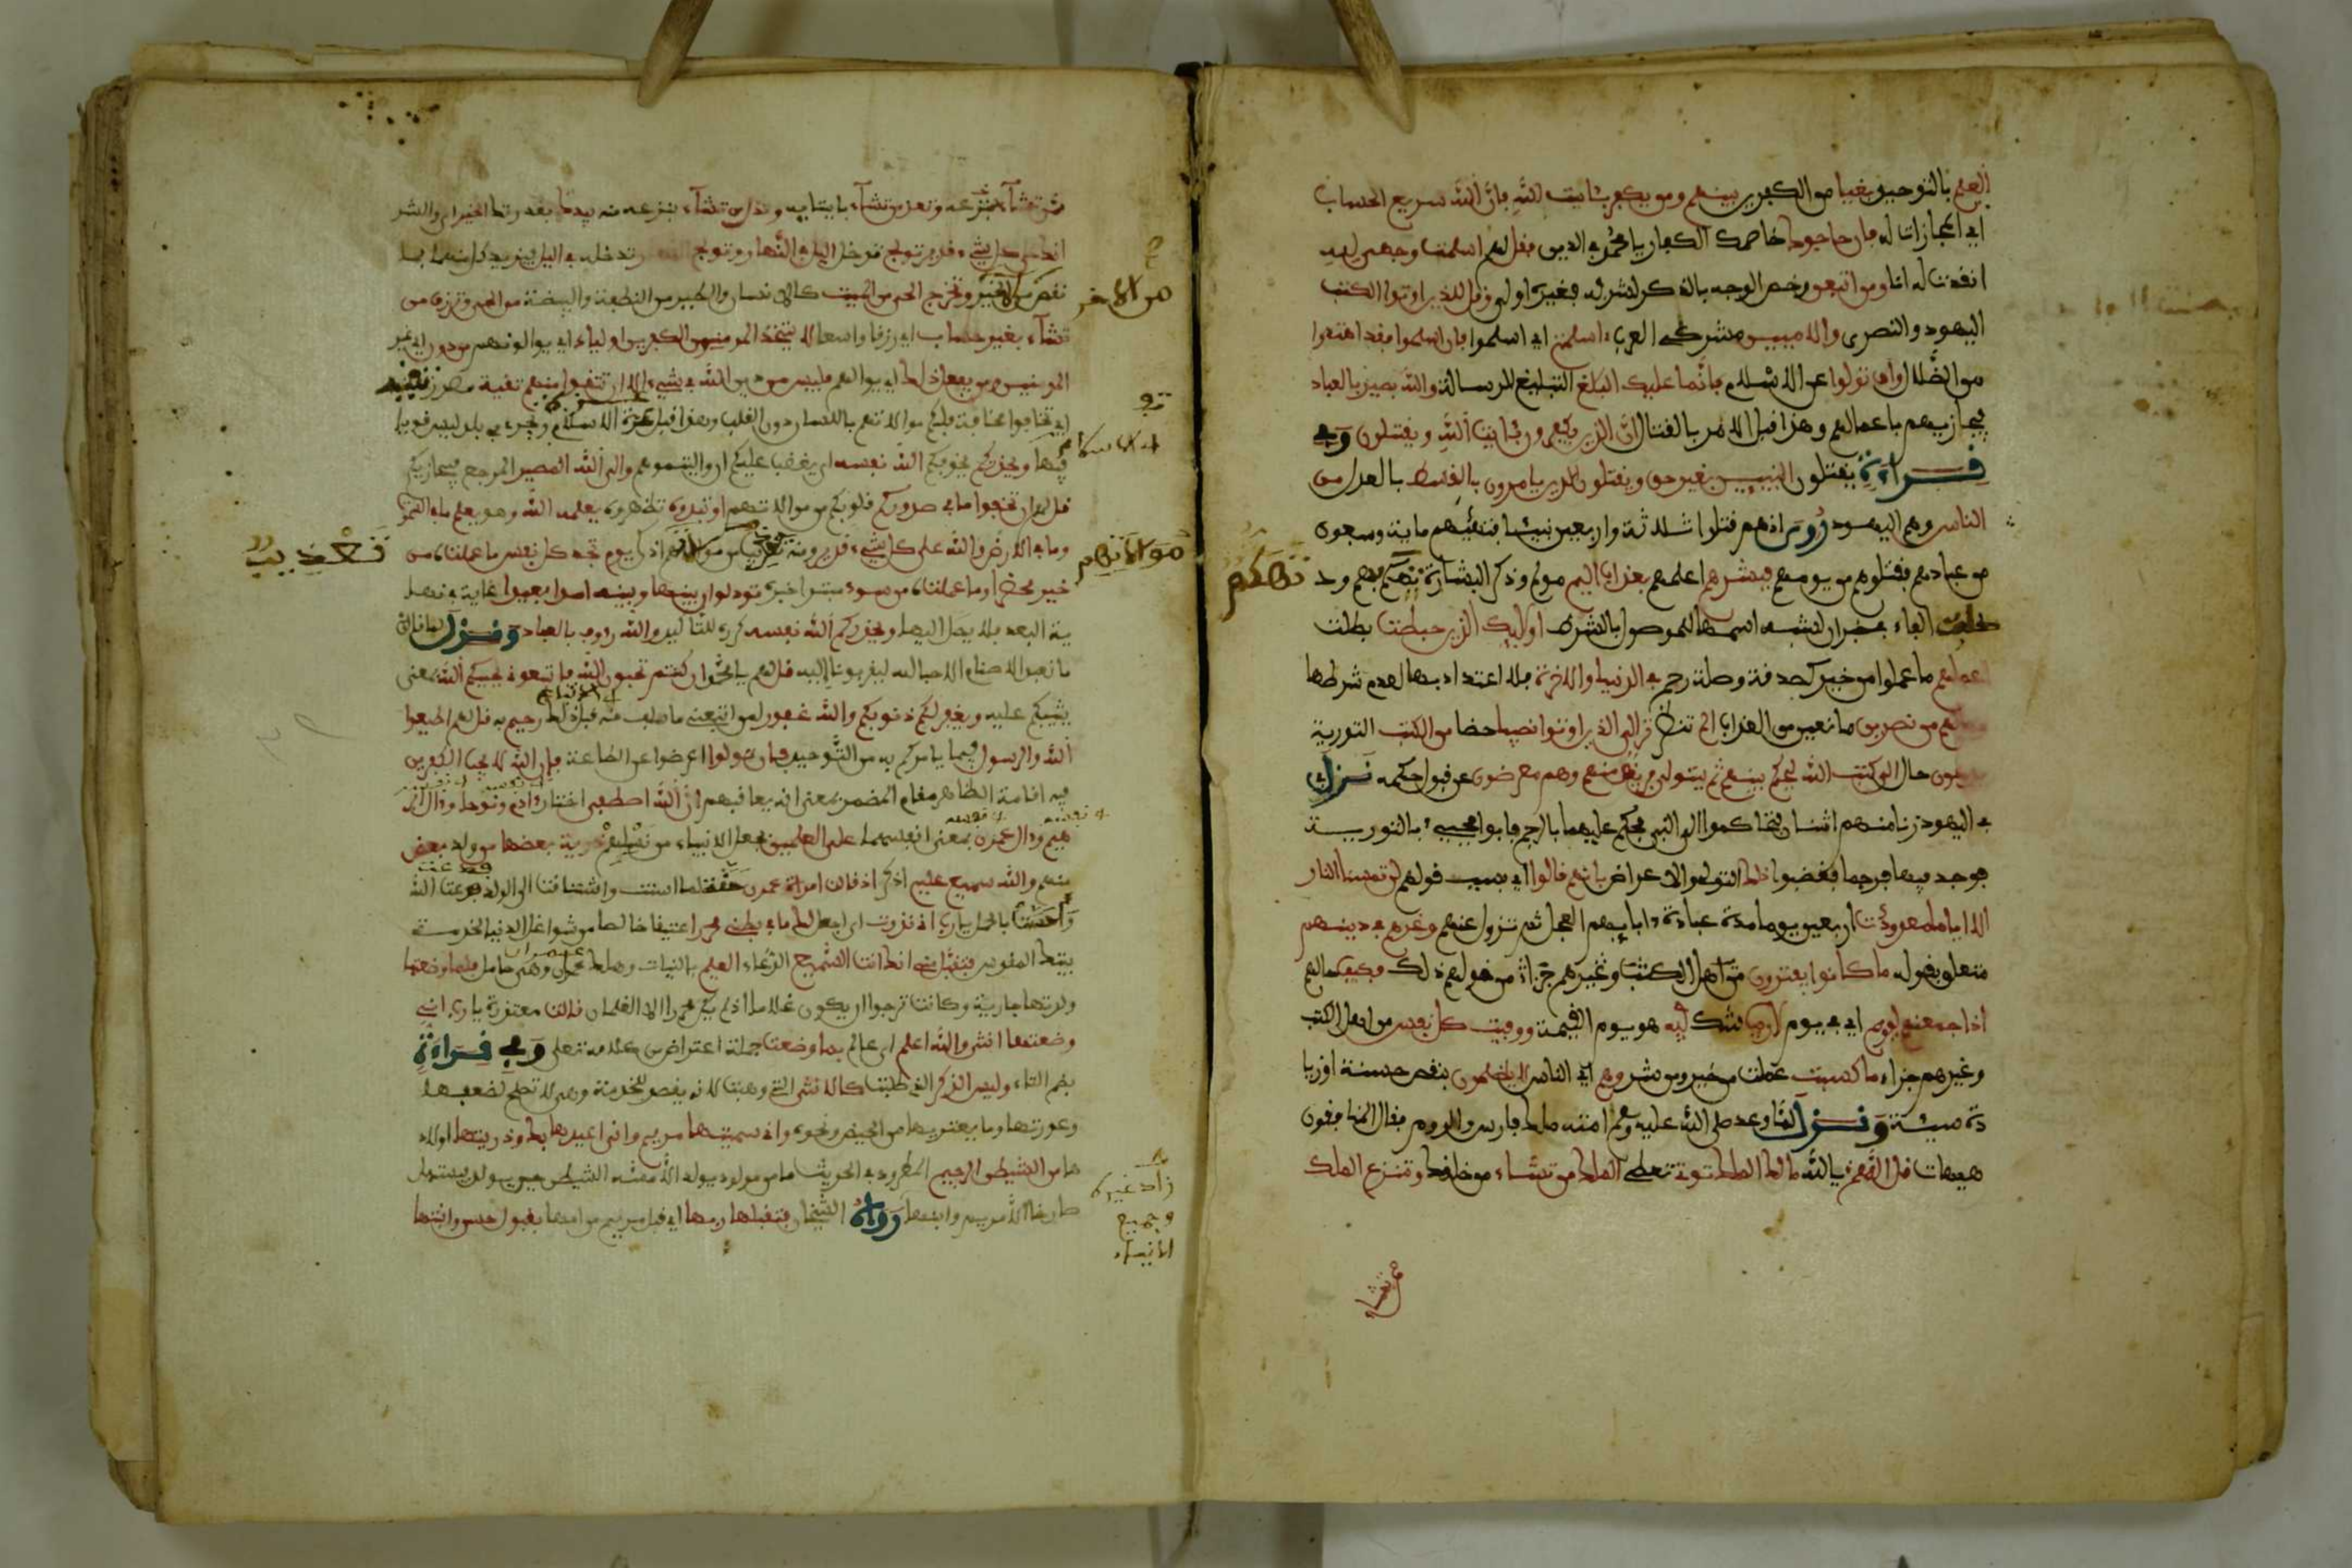 العلم بالتوحيد بغيا من الكفرين بينهم ومن يكفر بئايت الله فإن الله سريع الحساب
اي المجازات له فإن حاجوك خاصمك الكفار يا محمد في الدين فقل لهم اسلمت وجهي لله
انقدت له انا ومن اتبعن وخص الوجه بالذكر لشرفه فغيره اولى وقل للذين اوتوا الكتب
اليهود والنصرى والاميين مشركي العرب ءاسلمتم اي اسلموا فإن اسلموا فقد اهتدوا
من الضلال وإن تولوا عن الاسلام فإنما عليك البلغ التبليغ للرسالة والله بصير بالعباد
فيجازيهم باعمالهم وهذا قبل الامر بالقتال إن الذين يكفرون بئايت الله ويقتلون وفي
قراءة يقتلون النبيين بغير حق ويقتلون الذين يامرون بالقسط بالعدل من
الناس وهم اليهود روي انهم قتلوا ثلاثة واربعين نبيئا فنهاهم مائة وسبعون
من عبادهم فقتلوهم من يومهم فبشرهم اعلمهم بعذاب اليم مولم وذكر البشارة تهكم بهم ود
خلت الفاء في خبر ان لشبه اسمها الموصول بالشرط اوليك الذين حبطت بطلت
اعملهم ما عملوا من خير كصدقة وصلة رحم في الدنيا والاخرة فلا اعتداد بها لعدم شرطها
وما لهم من نصرين مانعين من العذاب الم تر تنظر إلى الذين اوتوا نصيبا حظا من الكتب التورية
يدعون حال الى كتب الله ليحكم بينهم ثم يتولى فريق منهم وهم معرضون عن قبول حكمه نزلت
في اليهود زنا منهم اثنان فتحاكموا الى النبي فحكم عليهما بالرجم فابوا فجيء بالتورية
فوجد فيها فرجما فغضبوا ذلك التولي والاعراض بانهم قالوا اي بسبب قولهم لن تمسنا النار
الا اياما معدودت اربعين يوما مدة عبادة ءابايهم العجل ثم تزول عنهم وغرهم في دينهم
متعلق بقوله ما كانوا يفترون من قولهم ذلك فكيف حالهم
اذا جمعنهم ليوم اي في يوم لا ريب شك فيه هو يوم القيمة ووفيت كل نفس من اهل الكتب
وغيرهم جزاء ما كسبت عملت من خير وشر وهم اي الناس لا يظلمون بنقص حسنة او زيا
دة سيئة ونزل لما وعد صلى الله عليه وسلم امته ملك فارس والروم فقال المنافقون
هيهات قل اللهم يا الله ملك الملك توتي تعطي الملك من تشاء من خلقك وتنزع الملك
ممن تشا
تهكم
من تشاء بنزعه وتعز من تشاء بايتايه وتذل من تشاء بنزعه منه بيدك بقدرتك الخير اي والشر
انك على كل شيء قدير تولج تدخل اليل في النهار وتولج النهار تدخله في اليل فيزيد كل منهما بما
نقص من الاخر وتخرج الحي من الميت كالانسان والطير من النطفة والبيضة من الحي وترزق من
تشاء بغير حساب اي رزقا واسعا لا يتخذ المومنون الكفرين اولياء اي يوالونهم من دون اي غير
المومنين ومن يفعل ذلك اي يواليهم فليس من دين الله في شيء الا ان تتقوا منهم تقية مصدر تقيته
اي تخافوا مخافة فلكم موالاتهم باللسان دون القلب وهذا قبل عزة الاسلام ويجري في بلد ليس قويا
فيها ويحذركم يخوفكم الله نفسه اي يغضب عليكم ان واليتموهم والى الله المصير المرجع فيجازيكم
قل لهم ان تخفوا ما في صدوركم قلوبكم من موالاتهم او تبدوه تظهروه يعلمه الله وهو يعلم ما في السموت
وما في الارض والله على كل شيء قدير ومنه تعذيب من موالاهم اذكر يوم تجد كل نفس ما عملت من
خير محضرا وما عملت من سوء مبتدا خبره تود لو ان بينها وبينه امدا بعيدا غاية في نها
ية البعد فلا يصل اليها ويحذركم الله نفسه كرره للتاكيد والله روف بالعباد ونزل لما قالوا
ما نعبد الاصنام الا حبا لله ليقربونا اليه قل لهم يا محمد ان كنتم تحبون الله فاتبعوني يحببكم الله بمعنى
يثيبكم عليه ويغفر لكم ذنوبكم والله غفور لمن اتبعني ما سلف منه قبل ذلك رحيم به قل لهم اطيعوا
الله والرسول فيما يامركم به من التوحيد فإن تولوا اعرضوا عن الطاعة فإن الله لا يحب الكفرين
فيه اقامة الظاهر مقام المضمر بمعنى انه يعاقبهم إن الله اصطفى اختار ءادم ونوحا وءال ابر
هيم وءال عمرن بمعنى انفسهما على العلمين بجعل الانبياء من نسلهم ذرية بعضها من ولد بعض
منهم والله سميع عليم اذكر اذ قالت امراة عمرن حنة لما اسنت واشتاقت الى الولد فدعت الله
واحست بالحمل يا رب اني نذرت ان اجعل لك ما في بطني محررا عتيقا خالصا من شواغل الدنيا لخدمة
بيتك المقدس فتقبل مني انك انت السميع الدعاء العليم بالنيات وهلك عمران وهي حامل فلما وضعتها
ولدتها جارية وكانت ترجو ان يكون غلاما اذ لم يكن يحرر الا الغلمان قالت معتذرة يا رب اني
وضعتها انثى والله اعلم اي عالم بما وضعت جملة اعتراض من كلامه تعلى وفي قراءة
بضم التاء وليس الذكر الذي طلبت كالانثى التي وهبت لانه يقصد للخدمة وهي لا تصلح لضعفها
وعورتها وما يعتريها من الحيض ونحوه واني سميتها مريم واني اعيذها بك وذريتها اولاد
ها من الشيطن الرجيم المطرود في الحديث ما من مولود يولد الا مسه الشيطن حين يولد فيستهل
صارخا الا مريم وابنها رواه الشيخان فتقبلها ربها اي قبل مريم من امها بقبول حسن وانبتها
من الاخر
موالاتهم
تعذيب
زاد غيره
وجميع
الانبياء